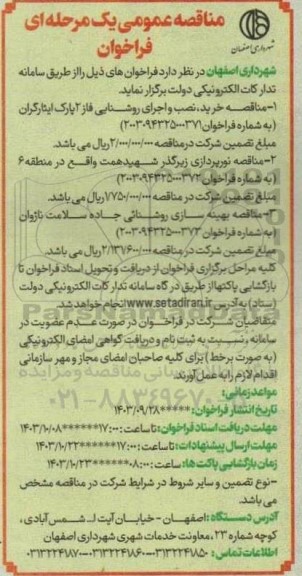 شهرداری اصفهان
مناقصه عمومی یک مرحله ای
فراخوان
شهرداری اصفهان در نظر دارد فراخوان های ذیل را از طریق سامانه
تدارکات الکترونیکی دولت برگزار نماید.
۱-مناقصه خرید، نصب و اجرای روشنایی فاز ۲ پارک ایثارگران
(به شماره فراخوان ۲۰۰۳۰۹۴۳۲۵۰۰۰۳۷۱)
مبلغ تضمین شرکت در مناقصه ۲/۰۰۰/۰۰۰/۰۰۰ ریال می باشد.
۲-مناقصه نورپردازی زیرگذر شهیدهمت واقع در منطقه ۶
(به شماره فراخوان ۲۰۰۳۰۹۴۳۲۵۰۰۰۳۷۲)
مبلغ تضمین شرکت در مناقصه ۷۷۵۰/۰۰۰/۰۰۰ ریال می باشد.
۳-مناقصه بهینه سازی روشنائی جاده سلامت ناژوان
(به شماره فراخوان ۲۰۰۳۰۹۴۳۲۵۰۰۰۳۷۳)
مبلغ تضمین شرکت در مناقصه ۲/۱۳۷/۶۰۰/۰۰۰ ریال می باشد.
کلیه مراحل برگزاری فراخوان از دریافت و تحویل اسناد فراخوان تا
بازگشایی پاکتها از طریق درگاه سامانه تدارکات الکترونیکی دولت
(ستاد) به آدرس www.setadiran.ir انجام خواهد شد.
متقاضیان شرکت در فراخوان در صورت عدم عضویت در
سامانه، نسبت به ثبت نام و دریافت گواهی امضای الکترونیکی
(به صورت برخط) برای کلیه صاحبان امضای مجاز و مهر سازمانی
اقدام لازم را به عمل آورند.
مواعد زمانی:
تاریخ انتشار فراخوان: *****۱۴۰۳/۰۹/۲۸
مهلت دریافت اسناد فراخوان: تا ساعت: ۱۷:۰۰******۱۴۰۳/۱۰/۰۸
مهلت ارسال پیشنهادات: تا ساعت: ۱۷:۰۰******۱۴۰۳/۱۰/۲۲
زمان بازگشایی پاکت ها: ساعت: ۰۸:۰۰******۱۴۰۳/۱۰/۲۳
-نوع تضمین و سایر شروط در شرایط شرکت در مناقصه مشخص
می باشد.
آدرس دستگاه: اصفهان - خیابان آیت ا... شمس آبادی،
کوچه شماره ۲۳، معاونت خدمات شهری شهرداری اصفهان
اطلاعات تماس: ۰۳۱۳۲۲۴۱۸۵۰-۰۳۱۳۲۲۴۱۸۶۰-۰۳۱۳۲۲۴۱۸۷۰
ParsNamadData
۰۲۱-۸۸۳۴۹۶۷۰